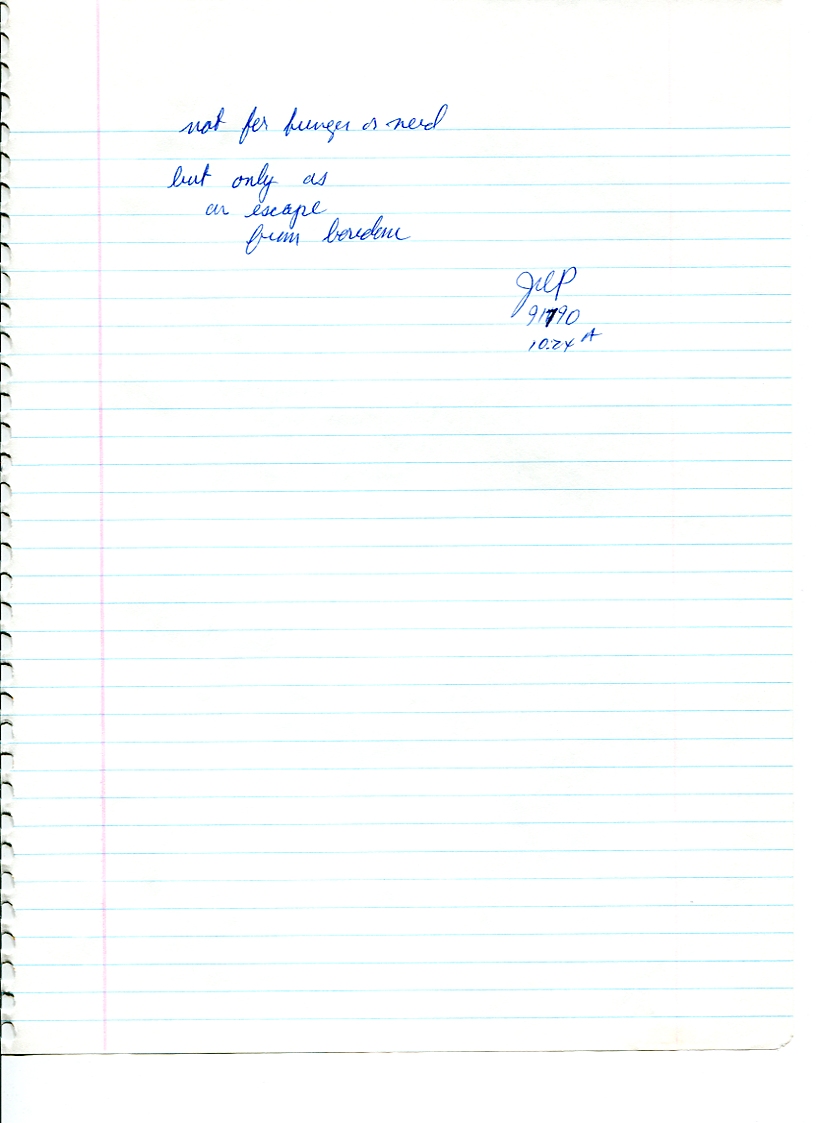 not for hunger or need
but only as
an escape
from boredom
91790
10:24 A